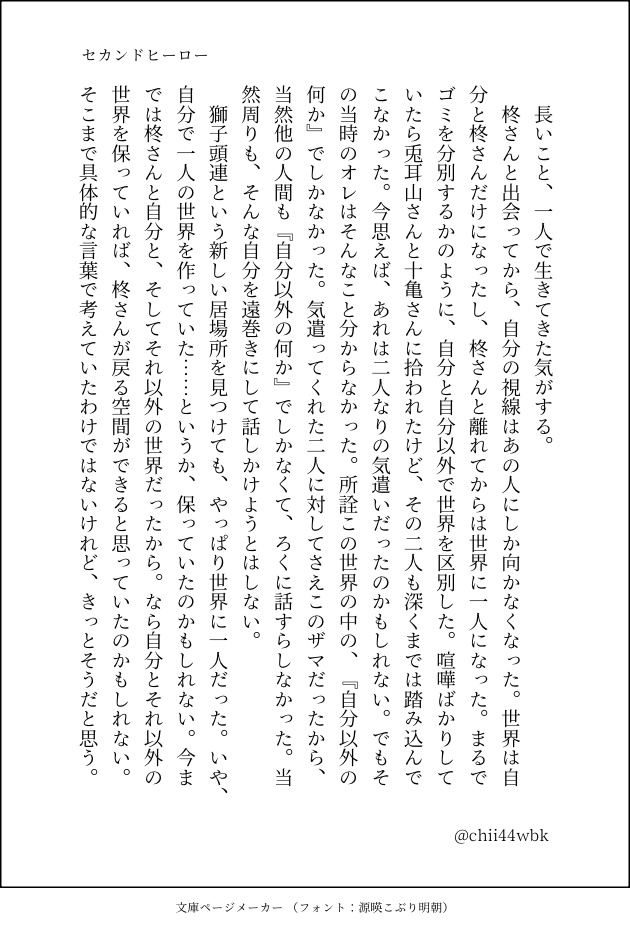 セカンドヒーロー
　長いこと、一人で生きてきた気がする。
　柊さんと出会ってから、自分の視線はあの人にしか向かなくなった。世界は自
分と柊さんだけになったし、柊さんと離れてからは世界に一人になった。まるで
ゴミを分別するかのように、自分と自分以外で世界を区別した。喧嘩ばかりして
いたら兎耳山さんと十亀さんに拾われたけど、その二人も深くまでは踏み込んで
こなかった。今思えば、あれは二人なりの気遣いだったのかもしれない。でもそ
の当時のオレはそんなこと分からなかった。所詮この世界の中の、『自分以外の
何か』でしかなかった。気遣ってくれた二人に対してさえこのザマだったから、
当然他の人間も『自分以外の何か』でしかなくて、ろくに話すらしなかった。当
然周りも、そんな自分を遠巻きにして話しかけようとはしない。
　獅子頭連という新しい居場所を見つけても、やっぱり世界に一人だった。いや、
自分で一人の世界を作っていた……というか、保っていたのかもしれない。今ま
では柊さんと自分と、そしてそれ以外の世界だったから。なら自分とそれ以外の
世界を保っていれば、柊さんが戻る空間ができると思っていたのかもしれない。
そこまで具体的な言葉で考えていたわけではないけれど、きっとそうだと思う。
@chii44wbk
文庫ページメーカー（フォント：源暎こぶり明朝）